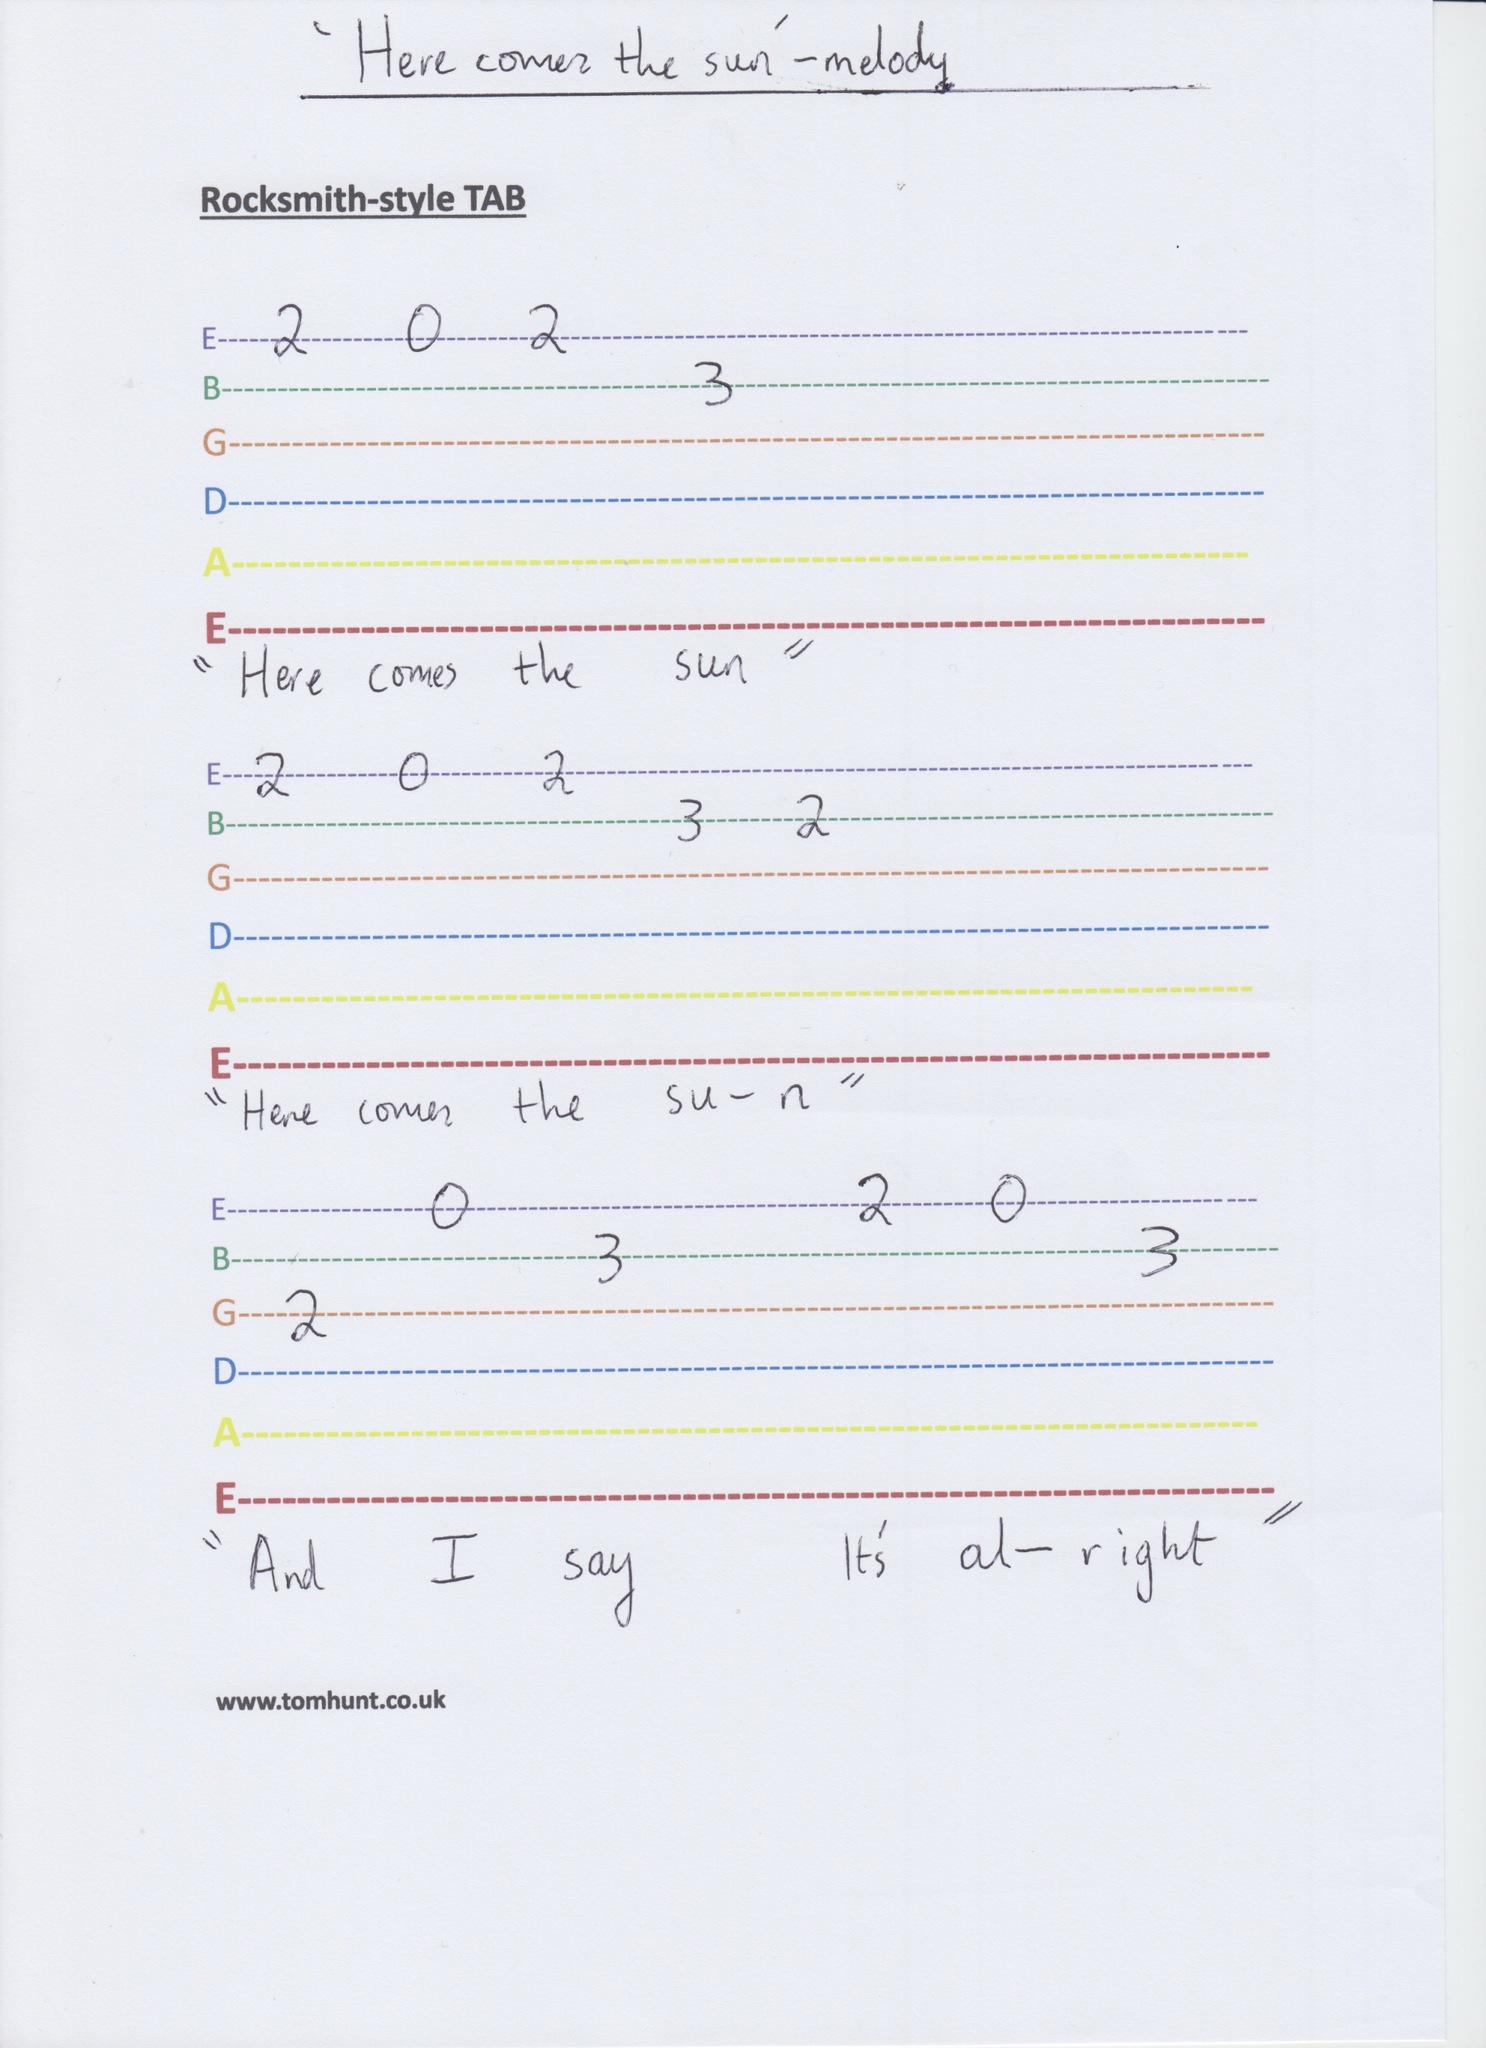 'Here comes the sun' - melody
Rocksmith-style TAB
E 2 0 2
B 3
G
D
A
E
"Here comes the sun"
E 2 0 2
B 3 2
G
D
A
E
"Here comes the su-n"
E 0 2 0
B 3 3
G 2
D
A
E
"And I say It's al-right"
www.tomhunt.co.uk